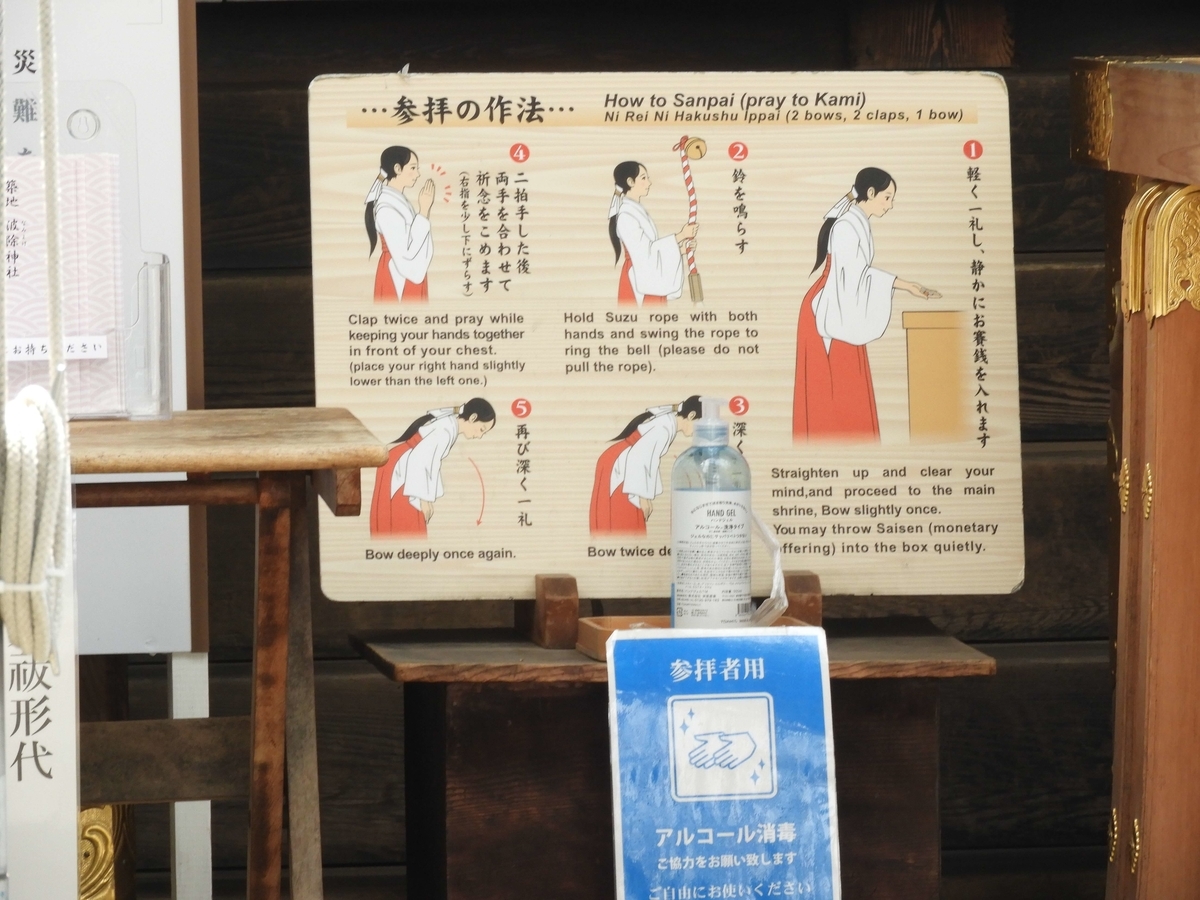 …参拝の作法…
How to Sanpai (pray to Kami)
Ni Rei Ni Hakushu Ippai (2 bows, 2 claps, 1 bow)
1
軽く一礼し、静かにお賽銭を入れます
Straighten up and clear your
mind,and proceed to the main
shrine, Bow slightly once.
You may throw Saisen (monetary
ffering) into the box quietly.
2
鈴を鳴らす
Hold Suzu rope with both
hands and swing the rope to
ring the bell (please do not
pull the rope).
3
深く
Bow twice de
4
二拍手した後
両手を合わせて
祈念をこめます
(右指を少し下にずらす)
Clap twice and pray while
keeping your hands together
in front of your chest.
(place your right hand slightly
lower than the left one.)
5
再び深く一礼
Bow deeply once again.
HAND GEL
ハンドジェル
アルコール洗浄タイプ
参拝者用
アルコール消毒
ご協力をお願い致します
ご自由にお使いください
災難
築地 波除神社
お待ちください
祓形代